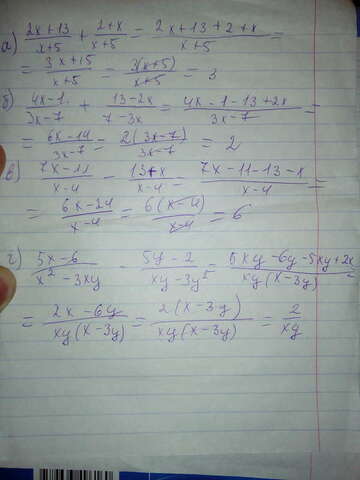 а) (2x+13)/(x+5) + (2+x)/(x+5) = (2x+13+2+x)/(x+5) =
= (3x+15)/(x+5) = 3(x+5)/(x+5) = 3
б) (4x-1)/(3x-7) + (13-2x)/(7-3x) = (4x-1-13+2x)/(3x-7) =
= (6x-14)/(3x-7) = 2(3x-7)/(3x-7) = 2
в) (7x-11)/(x-4) - (13+x)/(x-4) = (7x-11-13-x)/(x-4) =
= (6x-24)/(x-4) = 6(x-4)/(x-4) = 6
г) (5x-6)/(x²-3xy) - (5y-2)/(xy-3y²) = (5xy-6y-5xy+2x)/(xy(x-3y)) =
= (2x-6y)/(xy(x-3y)) = 2(x-3y)/(xy(x-3y)) = 2/(xy)